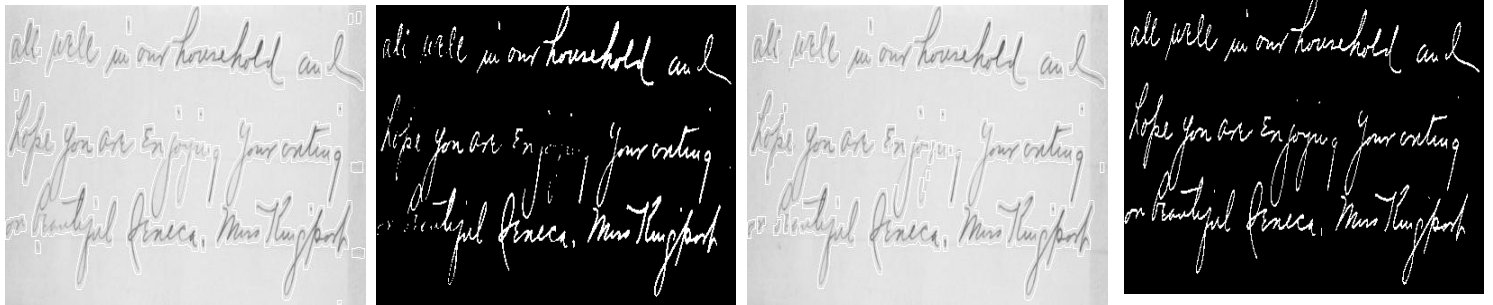 all well in our household and
hope you are Enjoying Your outing
on beautiful Seneca. Miss Kingport
all well in our household and
hope you are Enjoying Your outing
on beautiful Seneca. Miss Kingport
all well in our household and
hope you are Enjoying Your outing
on beautiful Seneca. Miss Kingport
all well in our household and
hope you are Enjoying Your outing
on beautiful Seneca. Miss Kingport